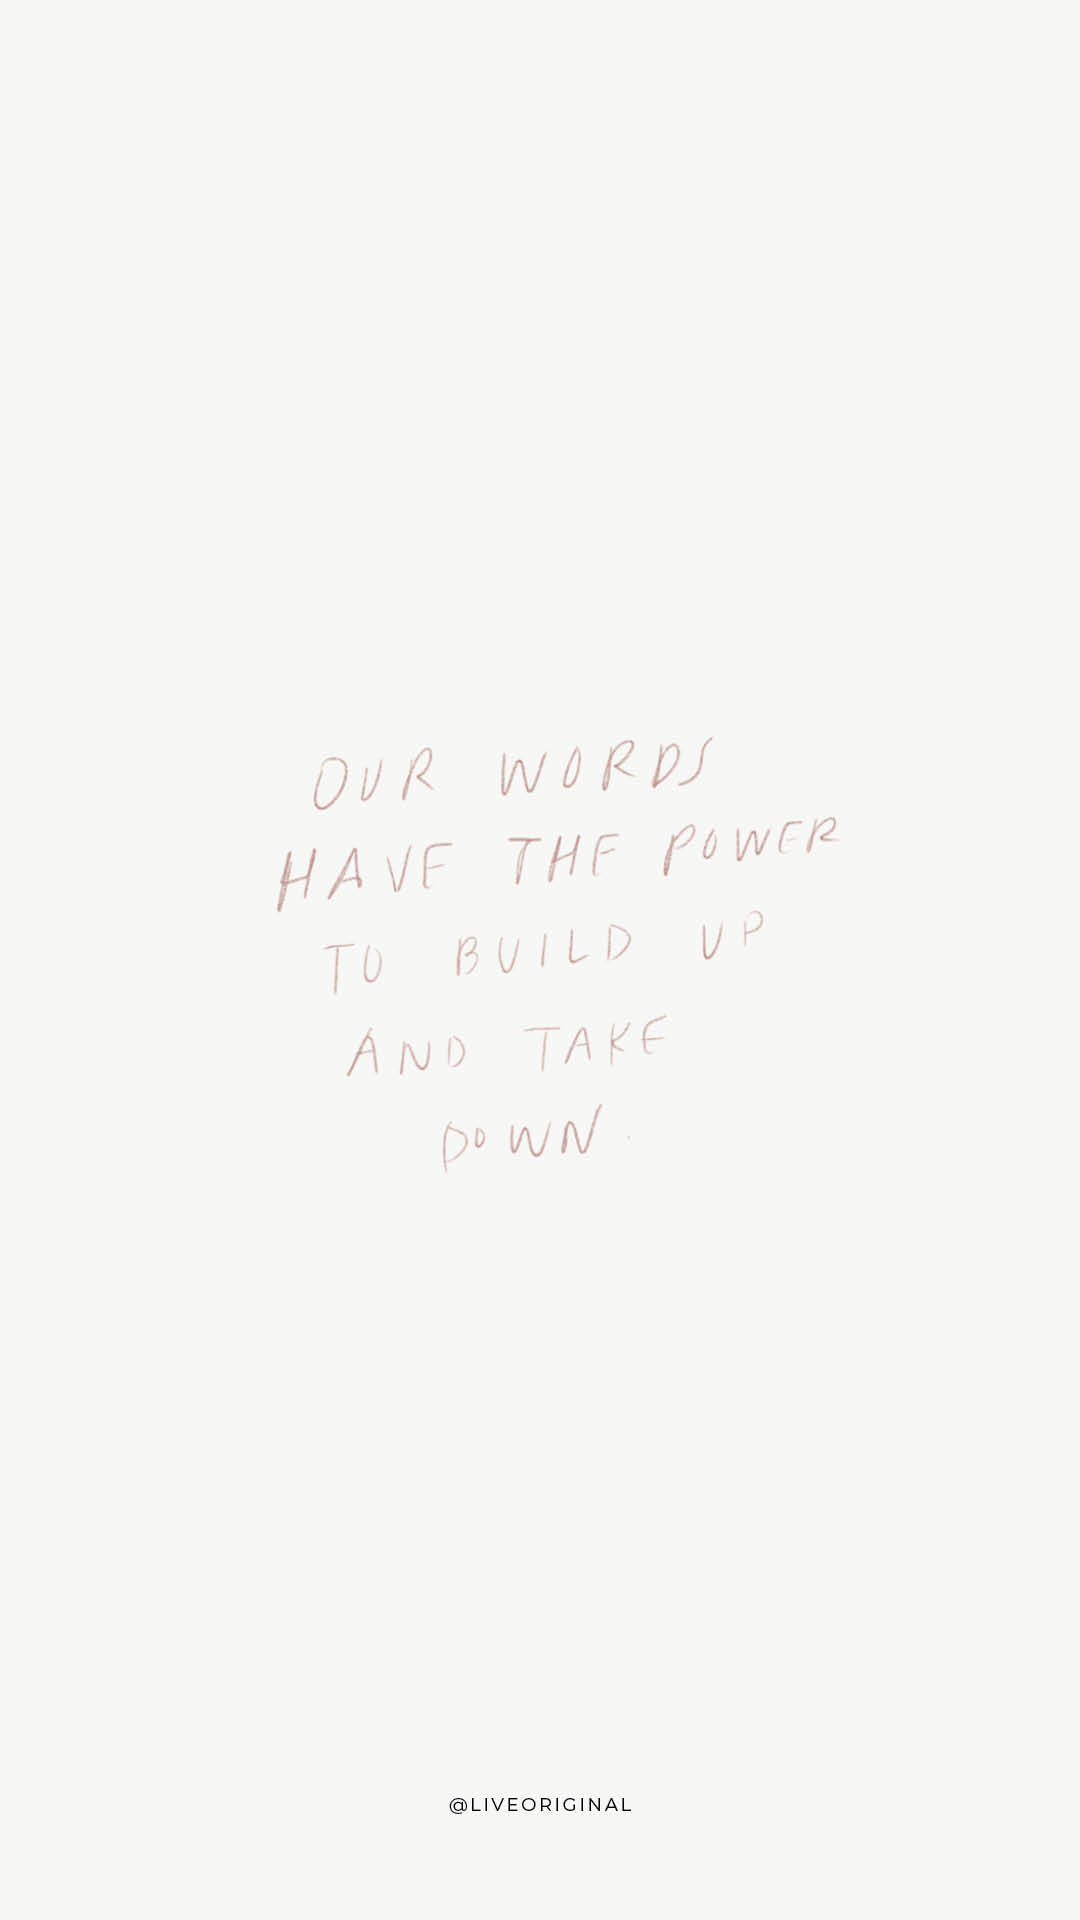 OUR WORDS
HAVE THE POWER
TO BUILD UP
AND TAKE
DOWN.
@LIVEORIGINAL